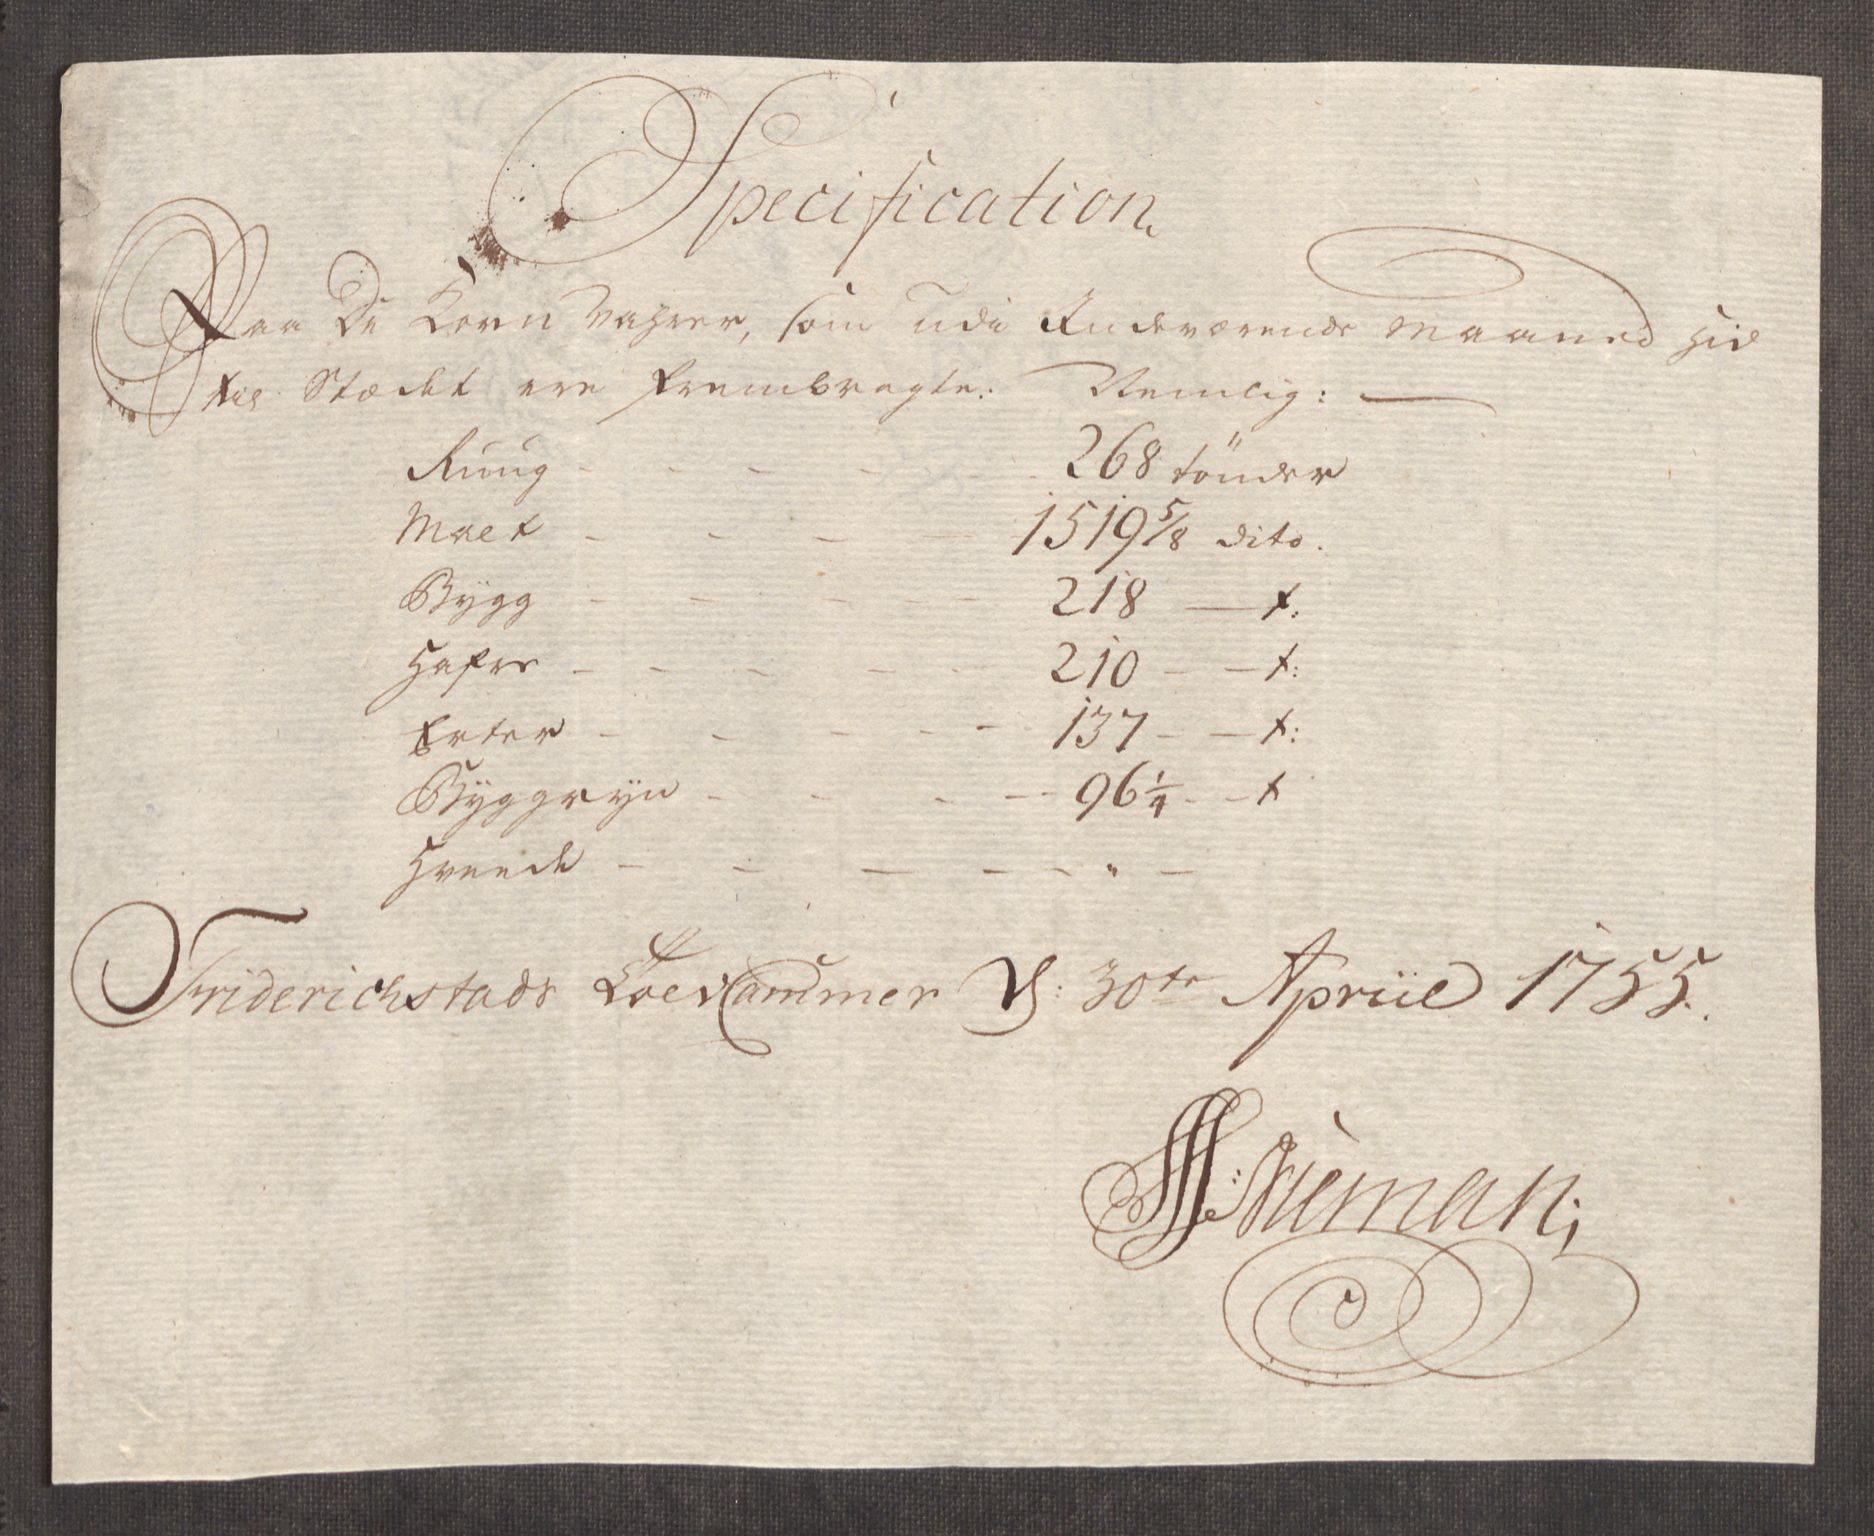 Specification
Paa De Korn Vahrer, som udi Indeværende Maaned hid
til Stædet ere frembragte. Nemlig:
Ruug - - - - 268 tönder
Malt - - - - 1519 5/8 dito.
Bÿgg - - - - 218 — t:
Hafre - - - - - 210 - — t:
Erter - - - - - 137 - — t:
Bÿggrÿn - - - - 96 1/4 - - t
Hveede - - - - - " -
Friderichstads Toldkammer D: 30te Apriil 1755.